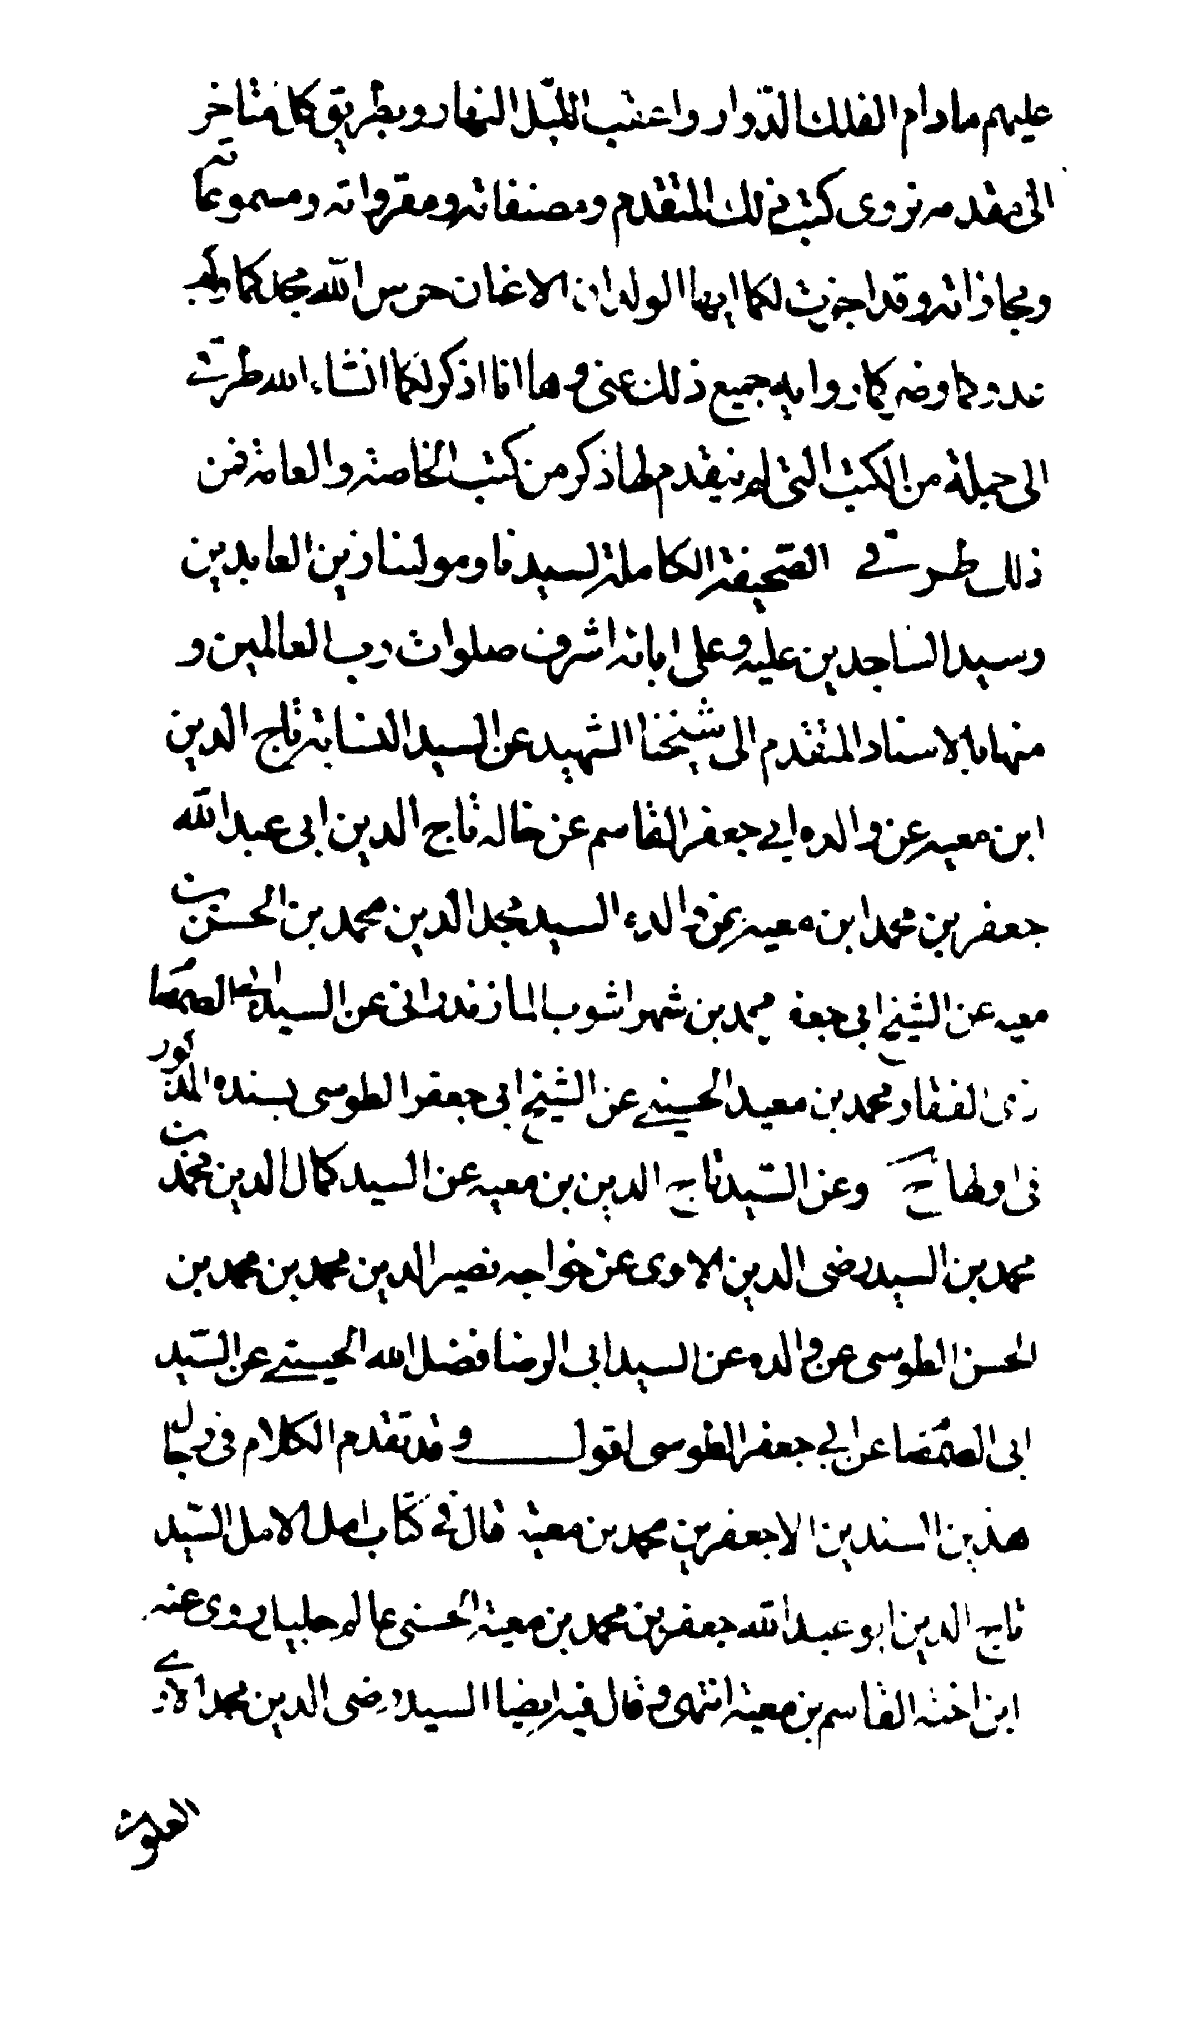 عليهم مادام الفلك الدّوار واعقب الليل النهار وبطريق كل متاخر
الى مقدمه نروى كتب ذلك المتقدم ومصنفاته ومقرواته ومسموعاته
ومجازاته وقد اجزت لكما ايها الولدان الاغران حرس الله مجدكما
روايه جميع ذلك عنى وها انا اذكر لكما انشاء الله طرق
الى جملة من الكتب التى لم يتقدم لها ذكر من كتب الخاصة والعامة فمن
ذلك طرقى الصحيفة الكاملة لسيدنا ومولينا زين العابدين
وسيد الساجدين عليه وعلى ابائه اشرف صلوات رب العالمين و
منها بالاسناد المتقدم الى شيخنا الشهيد عن السيد النسابة تاج الدين
ابن معيه عن والده ابي جعفر القاسم عن خاله تاج الدين ابى عبد الله
جعفر بن محمد ابن معيه عن والده السيد مجد الدين محمد بن الحسن بن
معيه عن الشيخ ابى جعفر محمد بن شهراشوب المازندرانى عن السيد ابى الصمصا
ذى الفقار محمد بن معبد الحسينى عن الشيخ ابى جعفر الطوسى بسنده المذكور
فى اولها ح وعن السّيد تاج الدين بن معيه عن السيد كمال الدين محمد بن
محمد بن السيد رضى الدين الاوى عن خواجه نصير الدين محمد بن محمد بن
الحسن الطوسى عن والده عن السيد ابى الرضا فضل الله الحسينى عن السّيد
ابى الصمصا عن ابي جعفر الطوسى اقول وقد تقدم الكلام فى رجال
هذين السندين الا جعفر بن محمد بن معية قال في كتاب امل الامل السّيد
تاج الدين ابو عبد الله جعفر بن محمد بن معية الحسنى عالم جليل يروى عنه
ابن اخته القاسم بن معية انتهى وقال فيه ايضا السيد رضى الدين محمد الاوى
العلوى